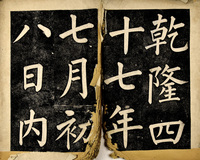 乾隆四
十七年
七月初
八日内